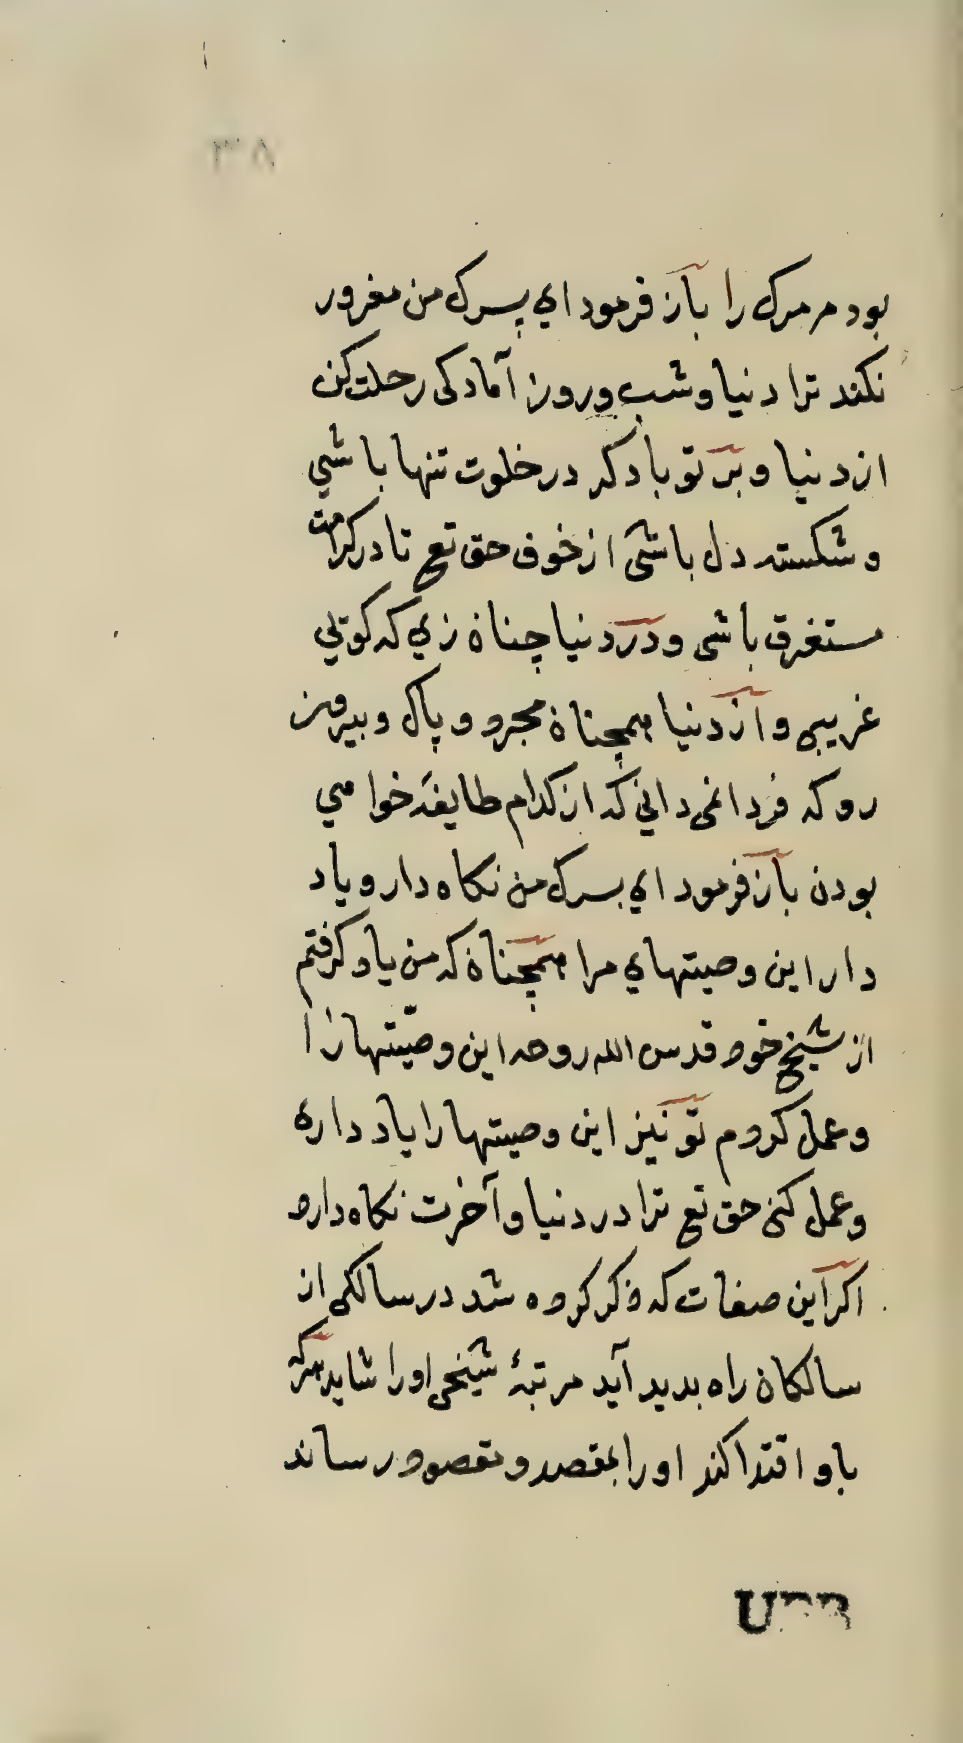 بود مر مرک را باز فرمود ای پسرک من مغرور
نکند ترا دنیا و شب و روز آمادکی رحلت کن
از دنیا و بر تو باد که در خلوت تنها باشی
و شکسته دل باشی از خوف حق تع تا در کرامت
مستغرق باشی و در دنیا چنان زی که کوئی
غریبی و از دنیا همچنان مجرد و پاک و بیرون
رو که فردا نمی دانی که از کدام طایفه خواهی
بودن باز فرمود ای پسرک من نکاه دار و یاد
دار این وصیتهای مرا همچنان که من یاد کرفتم
از شیخ خود قدس الله روحه این وصیتها را
و عمل کردم تو نیز این وصیتها را یاد داری
و عمل کنی حق تع ترا در دنیا و آخرت نکاه دارد
اکر این صفات که ذکر کرده شد در سالکی از
سالکان راه بدید آید مرتبهٔ شیخی او را شاید هرکه
باو اقتدا کند او را بمقصد و مقصود رساند